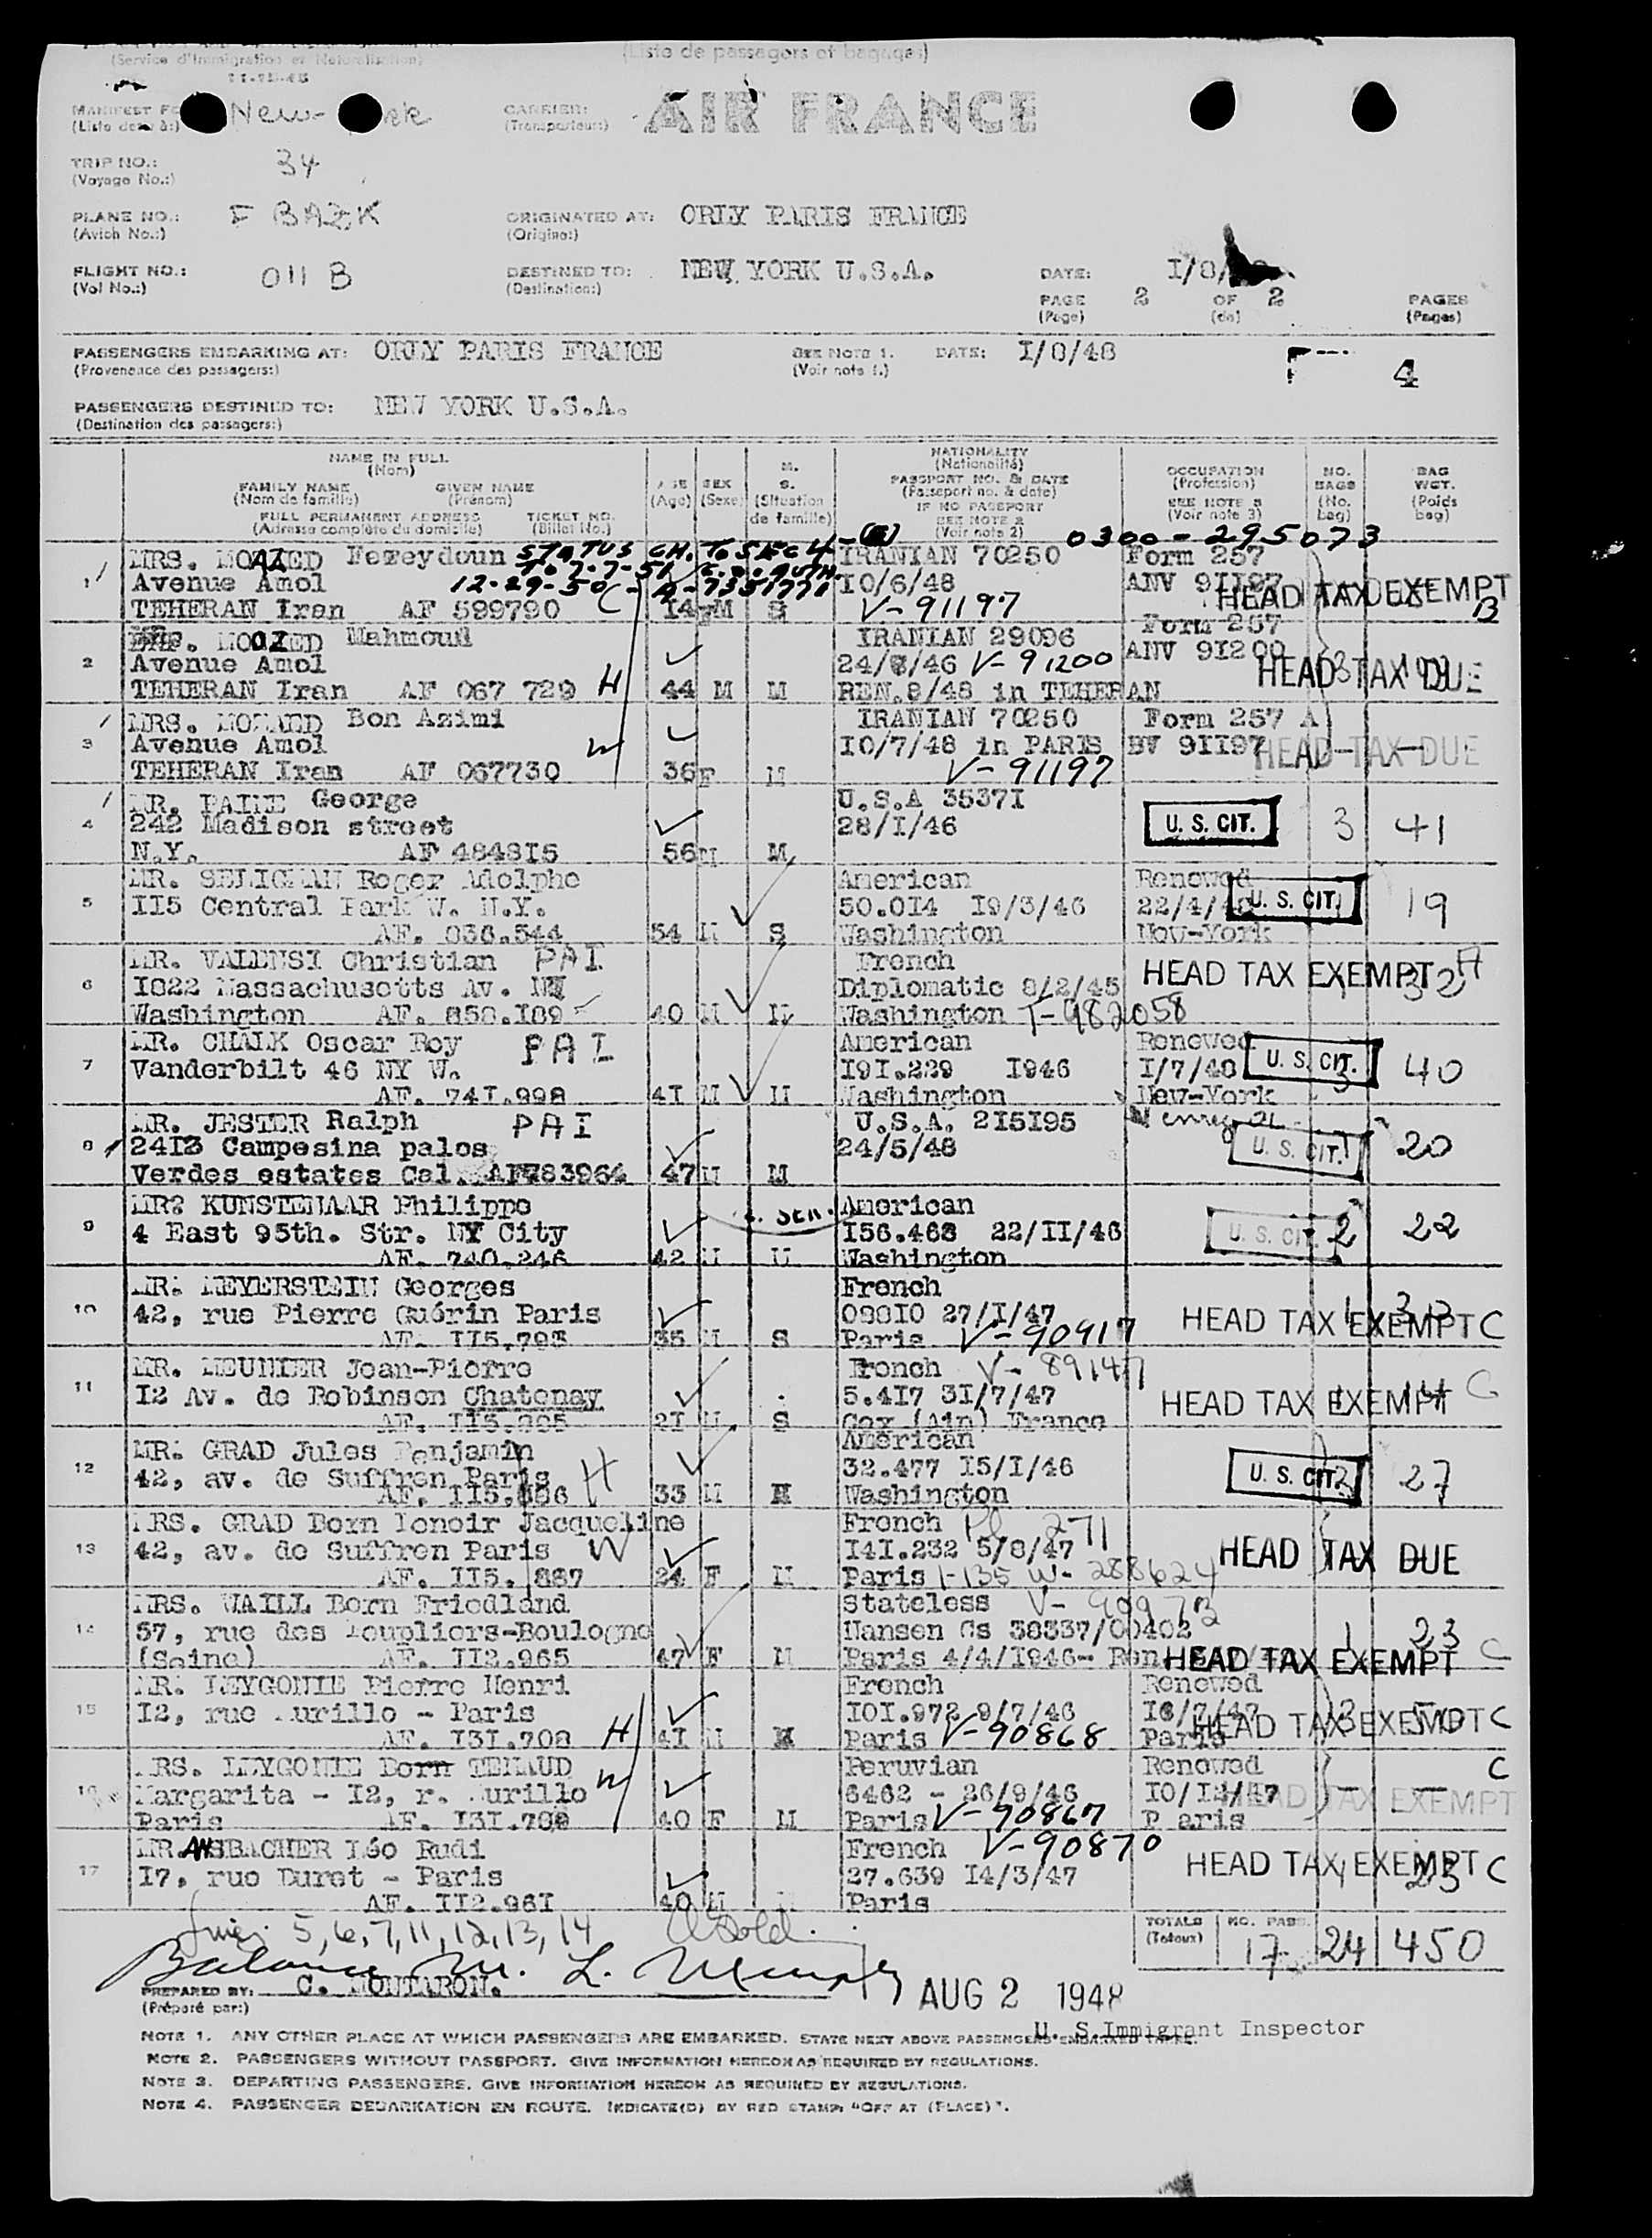 (Service d'Immigration et Naturalisation)
(Liste de passagers et bagages)
MANIFEST
(Liste de à:)
New-
CARRIER:
(Transporteur:)
AIR FRANCE
TRIP NO.: 34
(Voyage No.:)
PLANE NO.: F BAZK
(Avion No.:)
ORIGINATED AT: ORLY PARIS FRANCE
(Origine:)
FLIGHT NO.: 011 B
(Vol No.:)
DESTINED TO: NEW YORK U.S.A.
(Destination:)
DATE: I/8/
PAGE 2 OF 2 PAGES
(Page) (de) (Pages)
PASSENGERS EMBARKING AT: ORLY PARIS FRANCE SEE NOTE 1. DATE: I/8/48
(Provenance des passagers:) (Voir note 1.)
4
PASSENGERS DESTINED TO: NEW YORK U.S.A.
(Destination des passagers:)
NAME IN FULL
(Nom)
FAMILY NAME GIVEN NAME
(Nom de famille) (Prénom)
FULL PERMANENT ADDRESS TICKET NO.
(Adresse complète du domicile) (Billet No.)
AGE
(Age)
SEX
(Sexe)
M.
S.
(Situation
de famille)
NATIONALITY
(Nationalité)
PASSPORT NO. & DATE
(Passeport no. & date)
IF NO PASSPORT
SEE NOTE 2
(Voir note 2)
OCCUPATION
(Profession)
SEE NOTE 3
(Voir note 3)
NO.
BAGS
(No.
bag)
BAG
WGT.
(Poids
bag)
0300-295073
1 MRS. MOAZED Fereydoun STATUS CH. TO SEC 4- IRANIAN 70250 Form 257
Avenue Amol 12-29-50 A-7351771 10/6/48 ANV 9II97 HEAD TAX EXEMPT
TEHERAN Iran AF 599790 C 14 M S V-91197 B
2 MOAZED Mahmoud IRANIAN 29096 Form 257
Avenue Amol 24/8/46 V-91200 ANV 9I200 HEAD TAX DUE
TEHERAN Iran AF 067 729 H 44 M M REN.8/48 in TEHERAN
3 MRS. MOZAED Bon Azimi IRANIAN 70250 Form 257 A
Avenue Amol W I0/7/48 in PARIS NV 9II97 HEAD TAX DUE
TEHERAN Iran AF 067730 36 F M V-91197
4 MR. PAINE George U.S.A 3537I
242 Madison street 28/I/46 U. S. CIT. 3 41
N.Y. AF 4848I5 56 M M
5 MR. SELIGMAN Roger Adolphe American Renewed
II5 Central Park W. N.Y. 50.0I4 I9/3/46 22/4/48 U. S. CIT. 19
AF. 836.544 54 M S Washington New-York
6 MR. VALENSI Christian PAI French HEAD TAX EXEMPT 32 A
I822 Massachusetts Av. NW Diplomatic 8/2/45
Washington AF. 858.I89 40 M M Washington T-982058
7 MR. CHALK Oscar Roy PAI American Renewed
Vanderbilt 46 NY W. I9I.229 I946 I/7/48 U. S. CIT. 3 40
AF. 74I.998 4I M M Washington New-York
8 MR. JESTER Ralph PAI U.S.A. 2I5I95
24I3 Campesina palos 24/5/48 U. S. CIT. 1 20
Verdes estates Cal. AF783964 47 M M
9 MR? KUNSTENAAR Philippe American
4 East 95th. Str. NY City I56.468 22/II/46 U. S. CIT. 2 22
AF. 740.246 42 M M Washington
10 MR. MEYERSTEIN Georges French
42, rue Pierre Guérin Paris 08810 27/I/47 HEAD TAX EXEMPT C
AF. II5.793 35 M S Paris V-90917
11 MR. MEUNIER Jean-Pierre French V-89147
I2 Av. de Robinson Chatenay 5.4I7 3I/7/47 HEAD TAX EXEMPT 14 C
AF. II5.885 2I M S Gex (Ain) France
12 MR. GRAD Jules Benjamin American
42, av. de Suffren Paris H 32.477 I5/I/46 U. S. CIT. 2 27
AF. II5.886 33 M M Washington
13 MRS. GRAD Born Lenoir Jacqueline French 271
42, av. de Suffren Paris W I4I.232 5/8/47 HEAD TAX DUE
AF. II5.887 24 F M Paris I-135 W-288624
14 MRS. WAILL Born Friedland Stateless V-90973
57, rue des Peupliers-Boulogne Nansen Cs 38337/00402 1 23
(Seine) AF. II2.965 47 F M Paris 4/4/I946- Ren. HEAD TAX EXEMPT C
15 MR. LEYGONIE Pierre Henri French Renewed
I2, rue Murillo - Paris I0I.972 9/7/46 I8/7/47 3 HEAD TAX EXEMPT C
AF. I3I.708 H 4I M M Paris V-90868 Paris
16 MRS. LEYGONIE Born TENAUD Peruvian Renewed C
Margarita - I2, r. Murillo W 6462 - 26/9/46 I0/I2/47 HEAD TAX EXEMPT
Paris AF. I3I.709 40 F M Paris V-90867 P aris
17 MR. ANSBACHER Léo Rudi French V-90870
I7, rue Duret - Paris 27.639 I4/3/47 HEAD TAX EXEMPT 1 23 C
AF. II2.96I 40 M Paris
5, 6, 7, 11, 12, 13, 14
TOTALS NO. PASS. 17 24 450
(Totaux)
Balance M. L.
PREPARED BY: C. MONTARON.
(Préparé par:)
AUG 2 1948
U. S. Immigrant Inspector
NOTE 1. ANY OTHER PLACE AT WHICH PASSENGERS ARE EMBARKED. STATE NEXT ABOVE PASSENGERS EMBARKED THERE.
NOTE 2. PASSENGERS WITHOUT PASSPORT. GIVE INFORMATION HEREON AS REQUIRED BY REGULATIONS.
NOTE 3. DEPARTING PASSENGERS. GIVE INFORMATION HEREON AS REQUIRED BY REGULATIONS.
NOTE 4. PASSENGER DEBARKATION EN ROUTE. INDICATE(D) BY RED STAMP: "OFF AT (PLACE)".